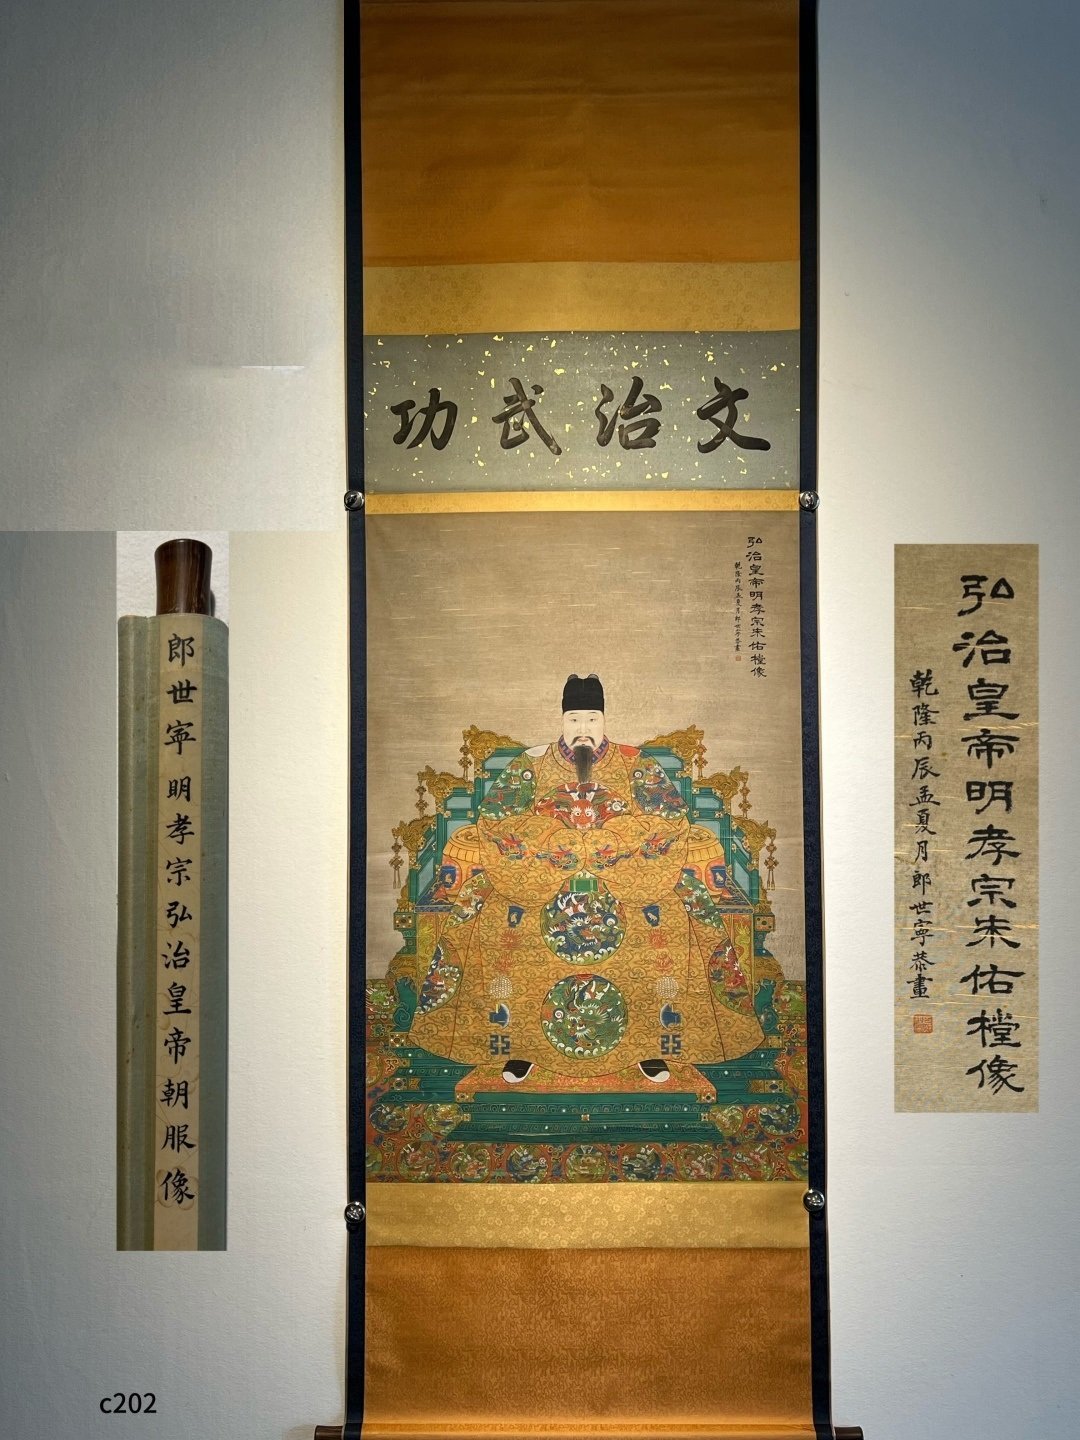 文治武功
弘治皇帝明孝宗朱佑樘像
乾隆丙辰孟夏月郎世寧恭畫
郎世寧 明孝宗弘治皇帝朝服像
弘治皇帝明孝宗朱佑樘像
乾隆丙辰孟夏月郎世寧恭畫
c202